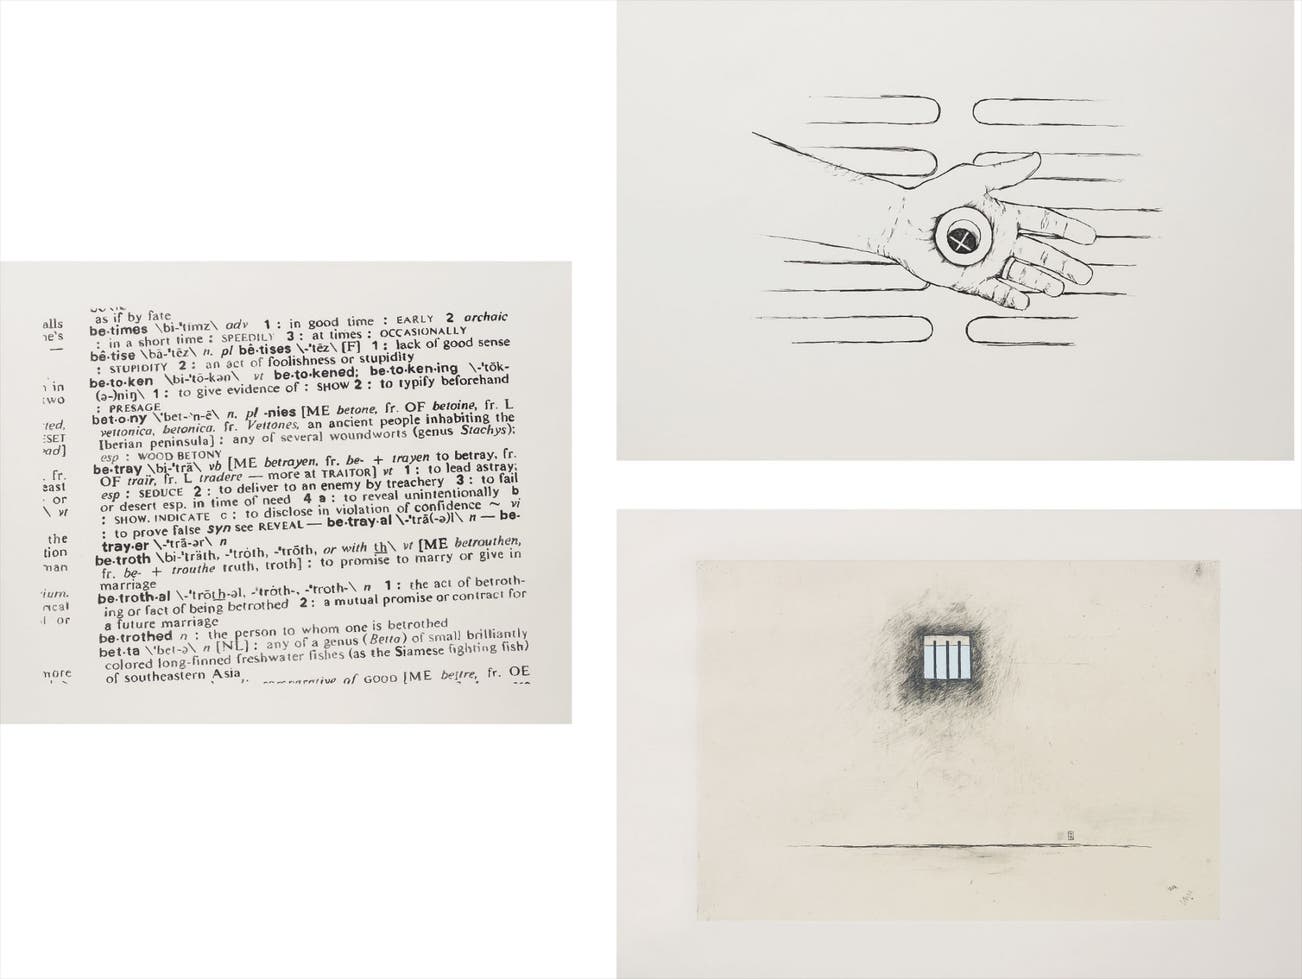 alls
ne's
—
in
two
ted,
ESET
ead]
. fr.
east
or
\ vt
the
tion
man
ium.
ncal
or
more
as if by fate
be·times \bi-ˈtīmz\ adv 1 : in good time : EARLY 2 archaic
: in a short time : SPEEDILY 3 : at times : OCCASIONALLY
bê·tise \bā-ˈtēz\ n. pl bê·tises \-ˈtēz\ [F] 1 : lack of good sense
: STUPIDITY 2 : an act of foolishness or stupidity
be·to·ken \bi-ˈtō-kən\ vt be·to·kened; be·to·ken·ing \-ˈtōk-
(ə-)niŋ\ 1 : to give evidence of : SHOW 2 : to typify beforehand
: PRESAGE
bet·o·ny \ˈbet-ᵊn-ē\ n, pl -nies [ME betone, fr. OF betoine, fr. L
vettonica, betonica, fr. Vettones, an ancient people inhabiting the
Iberian peninsula] : any of several woundworts (genus Stachys);
esp : WOOD BETONY
be·tray \bi-ˈtrā\ vb [ME betrayen, fr. be- + trayen to betray, fr.
OF traïr, fr. L tradere — more at TRAITOR] vt 1 : to lead astray;
esp : SEDUCE 2 : to deliver to an enemy by treachery 3 : to fail
or desert esp. in time of need 4 a : to reveal unintentionally b
: SHOW, INDICATE c : to disclose in violation of confidence ~ vi
: to prove false syn see REVEAL — be·tray·al \-ˈtrā(-ə)l\ n — be-
tray·er \-ˈtrā-ər\ n
be·troth \bi-ˈträth, -ˈtrȯth, -ˈtrōth, or with th\ vt [ME betrouthen,
fr. be- + trouthe truth, troth] : to promise to marry or give in
marriage
be·troth·al \-ˈtrōth-əl, -ˈtrȯth-, -ˈtroth-\ n 1 : the act of betroth-
ing or fact of being betrothed 2 : a mutual promise or contract for
a future marriage
be·trothed n : the person to whom one is betrothed
bet·ta \ˈbet-ə\ n [NL] : any of a genus (Betta) of small brilliantly
colored long-finned freshwater fishes (as the Siamese fighting fish)
of southeastern Asia
comparative of GOOD [ME bettre, fr. OE